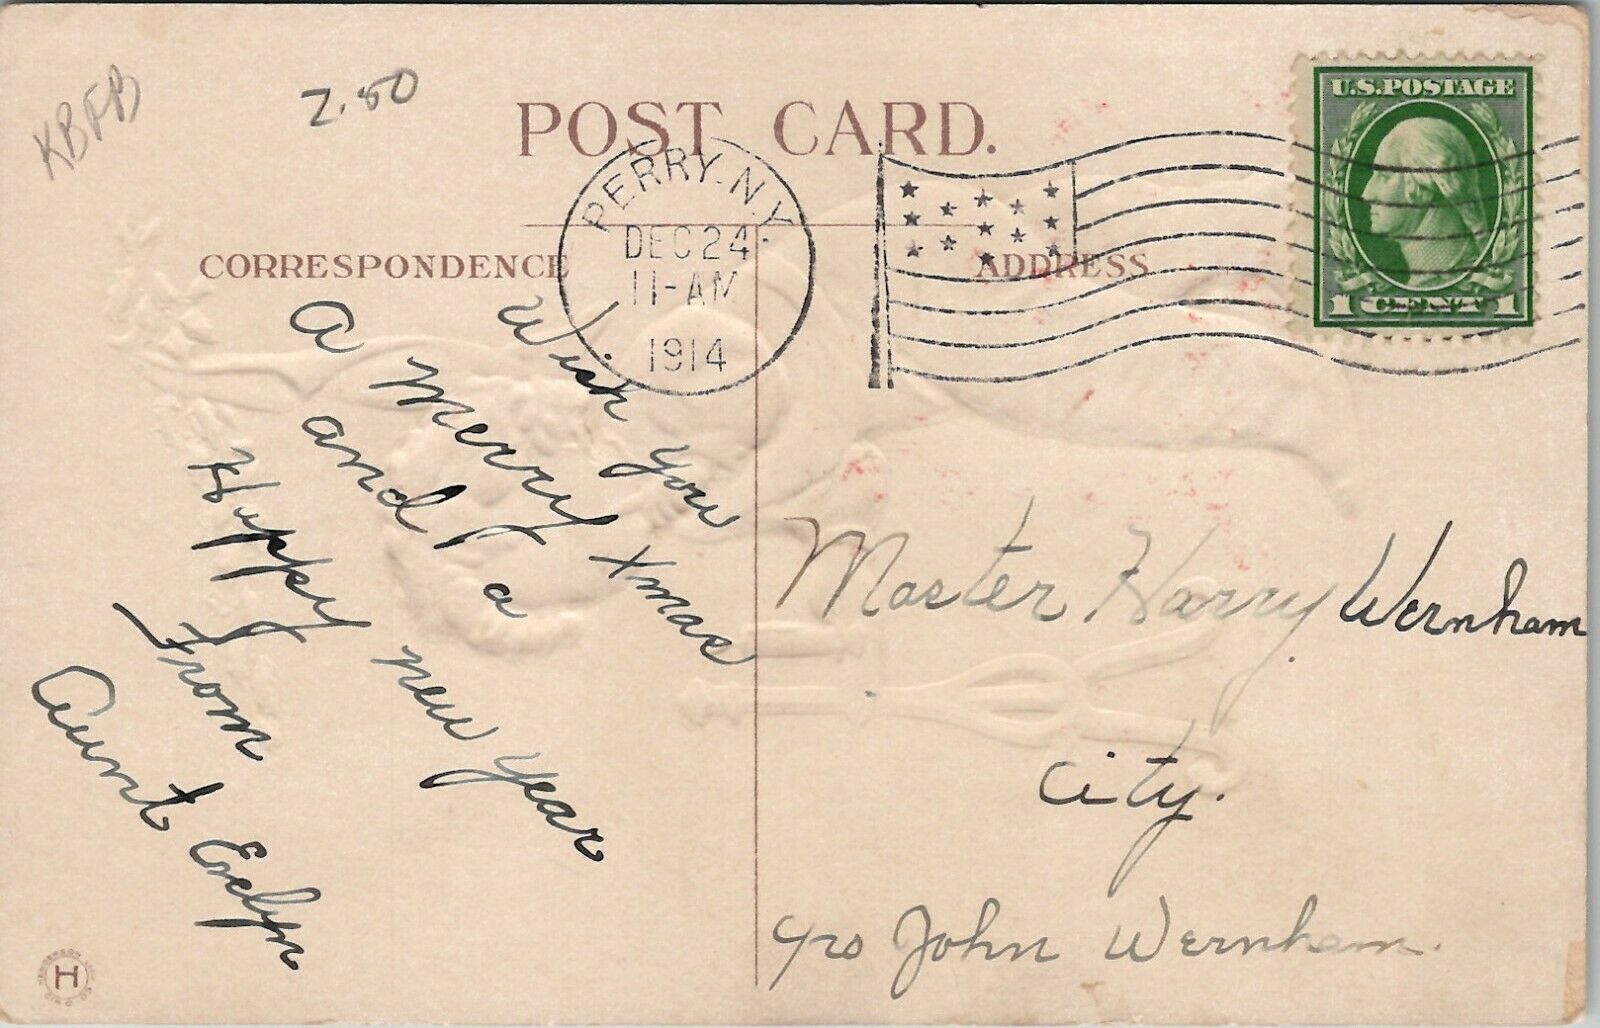 KBFB
2.50
POST CARD.
PERRY. N.Y.
DEC 24
11-AM
1914
U.S. POSTAGE
1 CENT 1
CORRESPONDENCE
ADDRESS
Wish you
a merry Xmas
and a
Happy new year
From
Aunt Evelyn
Master Harry Wernham
City.
c/o John Wernham.
H